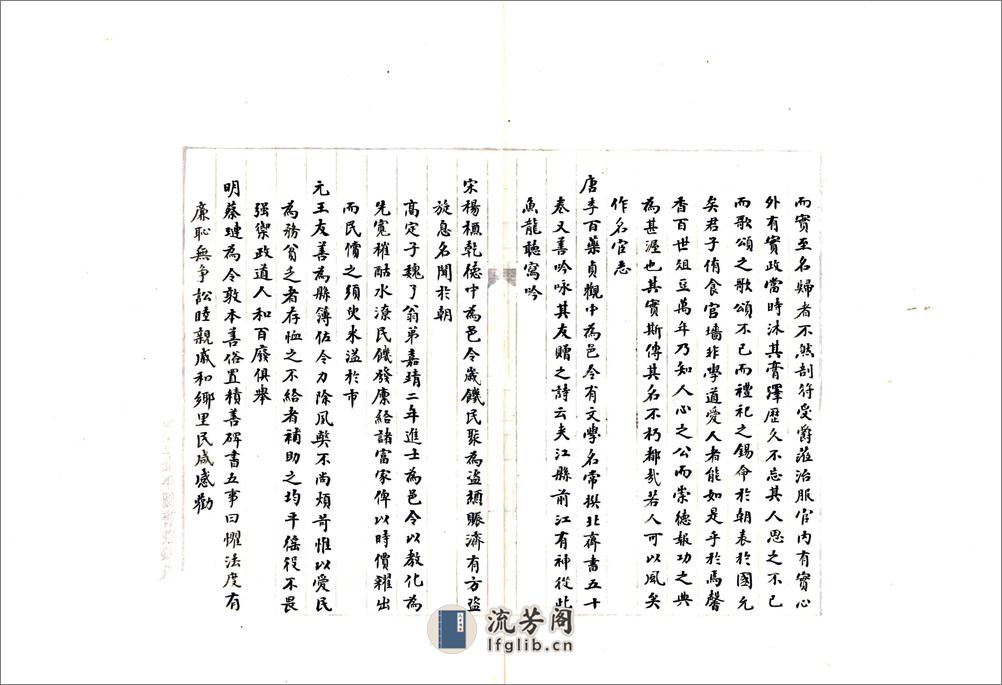 而實至名歸者不然剖符受爵蒞治服官內有實心
外有實政當時沐其膏澤歷久不忘其人思之不已
而歌頌之歌頌不已而禮祀之錫命於朝表於國允
矣君子侑食宫墻非學道愛人者能如是乎於馬馨
香百世俎豆萬年乃知人心之公而崇德報功之典
為甚渥也其實斯傳其名不朽都哉若人可以風矣
作名宦志
唐李百藥貞觀中為邑令有文學名常撰北齊書五十
卷又善吟咏其友贈之詩云夹江縣前江有神從此
魚龍聽寫吟
宋楊檟乾德中為邑令歲饑民聚為盜頒賑濟有方盜
旋息名聞於朝
高定子魏了翁弟嘉靖二年進士為邑令以教化為
先寬榷酤水潦民饑發廩給諸富家俾以時價糶出
而民償之須臾米溢於市
元王友善為縣簿佐令力除風獘不尚煩苛惟以愛民
為務貧乏者存恤之不給者補助之均平徭役不畏
强禦政道人和百廢俱舉
明蔡璉為令敦本善俗置積善碑書五事曰懼法度有
廉恥無爭訟睦親戚和鄉里民咸感勸
流芳阁
lfglib.cn